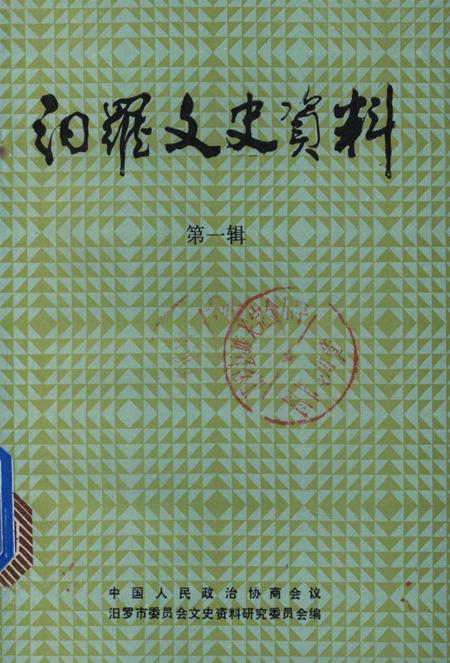 汨羅文史資料
第一辑
中国人民政治协商会议
汨罗市委员会文史资料研究委员会编